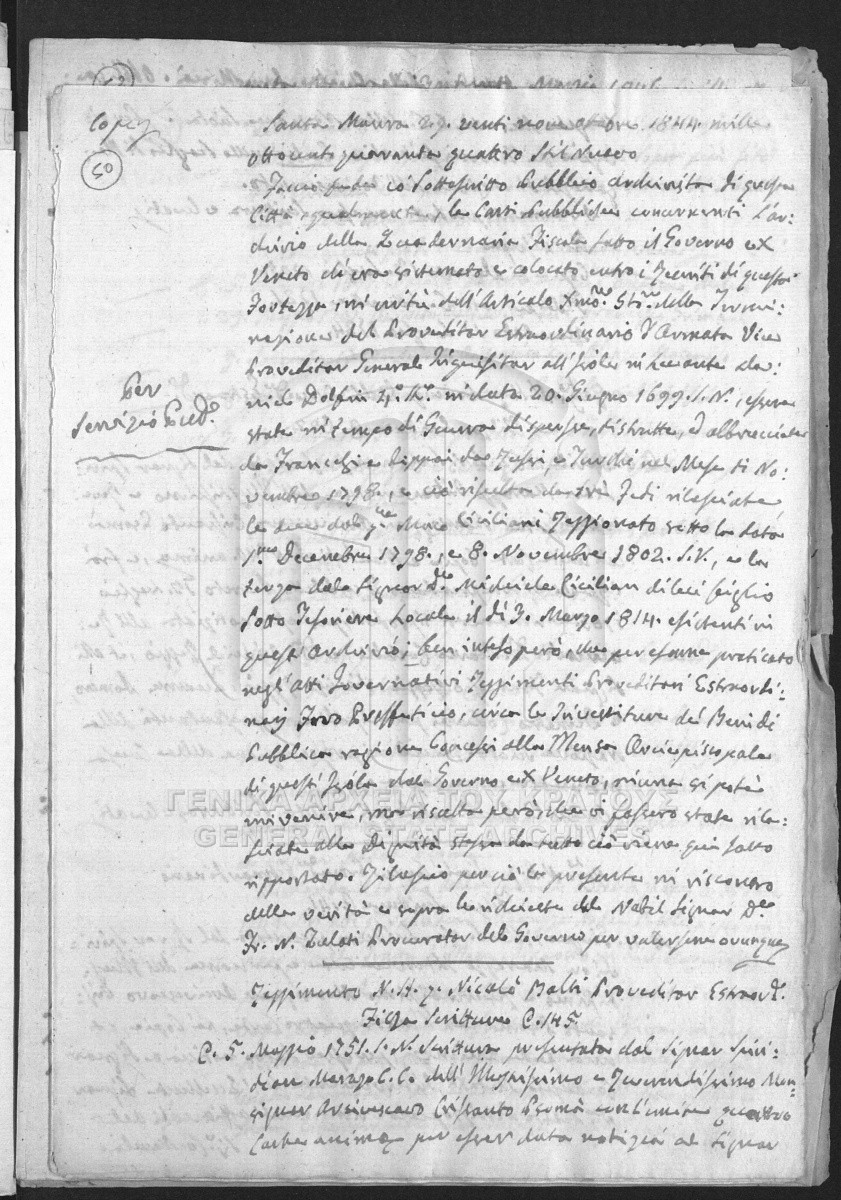 Copia
50
Santa Maura 29. venti nove ottobre 1844. mille
ottocento quaranta quattro Stil Nuovo
Faccio fede io Sottoscritto Pubblico Archivista di questa
Città, qualmente le Carti Pubbliche concernenti l'Ar-
chivio della Quadernaria Fiscale sotto il Governo ex
Veneto ch'era sistemato e colocato entro i Recinti di questa
Fortezza, in virtù dell'Articolo della Termi-
nazione del Proveditor Estraordinario d'Armata Vice
Proveditor General Inquisitor all'Isole in Levante da-
niele Dolfin in data 20. Giugno 1699. S.N., essere
state in tempo di Guerra disperse, distrutte, ed abbrucciate
da Francesi e da Russi e Turchi nel Mese di No-
vembre 1798., e ciò risulta da tre Fedi rilasciate
le due dal Marco Ciciliani sotto la data
Decembre 1798., e 8. Novembre 1802. S.V., e la
terza dal Signor Michiele Cicilian di lui figlio
sotto Tesoriere Locale il dì 3. Marzo 1814. esistenti in
quest'Archivio; ben inteso però, che per esame praticato
negl'atti Governativi Reggimenti Proveditori Estraordi-
narj circa le Investiture de' Beni di
Pubblica ragione Concessi alla Mensa Arciepiscopale
di quest'Isola dal Governo ex Veneto, niuna si potè
rinvenire, ma risulta però, che vi fossero state rila-
sciate alla Dignità stessa da tutto ciò viene qui sotto
rapportato. Rilascio perciò la presente in riscontro
della verità e sopra le richieste del Nobil Signor
N. Zulati Procurator del Governo per valersene ovunque
Per
Servizio Pub.º
Reggimento N. H. Nicolò Balbi Proveditor Estraord.
Filza Scritture C. 145.
C. 5. Maggio 1751. S. N. Scrittura presentata dal Signor Spiri-
dion dell'Illustrissimo e Reverendissimo Mon-
signor Arcivescovo Crisanto Psomà con l'unite quattro
Carte annesse per esser data notizia al Signor
ΓΕΝΙΚΑ ΑΡΧΕΙΑ ΤΟΥ ΚΡΑΤΟΥΣ
GENERAL STATE ARCHIVES